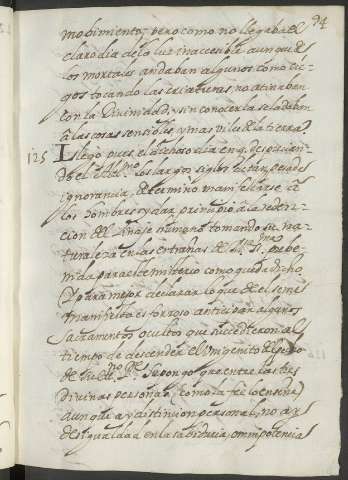 94
mobimiento; pero como no llegaba el
claro dia de la luz inaccesible aunque
los mortales andaban algunos como cie-
gos tocando las criaturas no atinaban
con la Divinidad, y sin conocerla se la daban
a las cosas sensibles, y mas viles de la tierra.
125 Llego pues el dichoso dia en q. despreçian-
do el Alt.mo los largos siglos de tan pesada
ignorancia, determino manifestarse a
los hombres y dar principio a la reden-
cion del linaje humano tomando su na-
turaleza en las entrañas de M.ª S.ª prebe-
nida para este misterio como queda dicho
Y para mejor declarar lo que de el se me
manifiesta es forçoso anticipar algunos
sacramentos ocultos que sucedieron al
tiempo de descender el Unigenito del pecho
de su eterno P.e Supongo que entre las tres
divinas personas (como la fe lo enseña)
aunque ay distincion personal, no ay
desigualdad en la sabiduria, omnipotencia